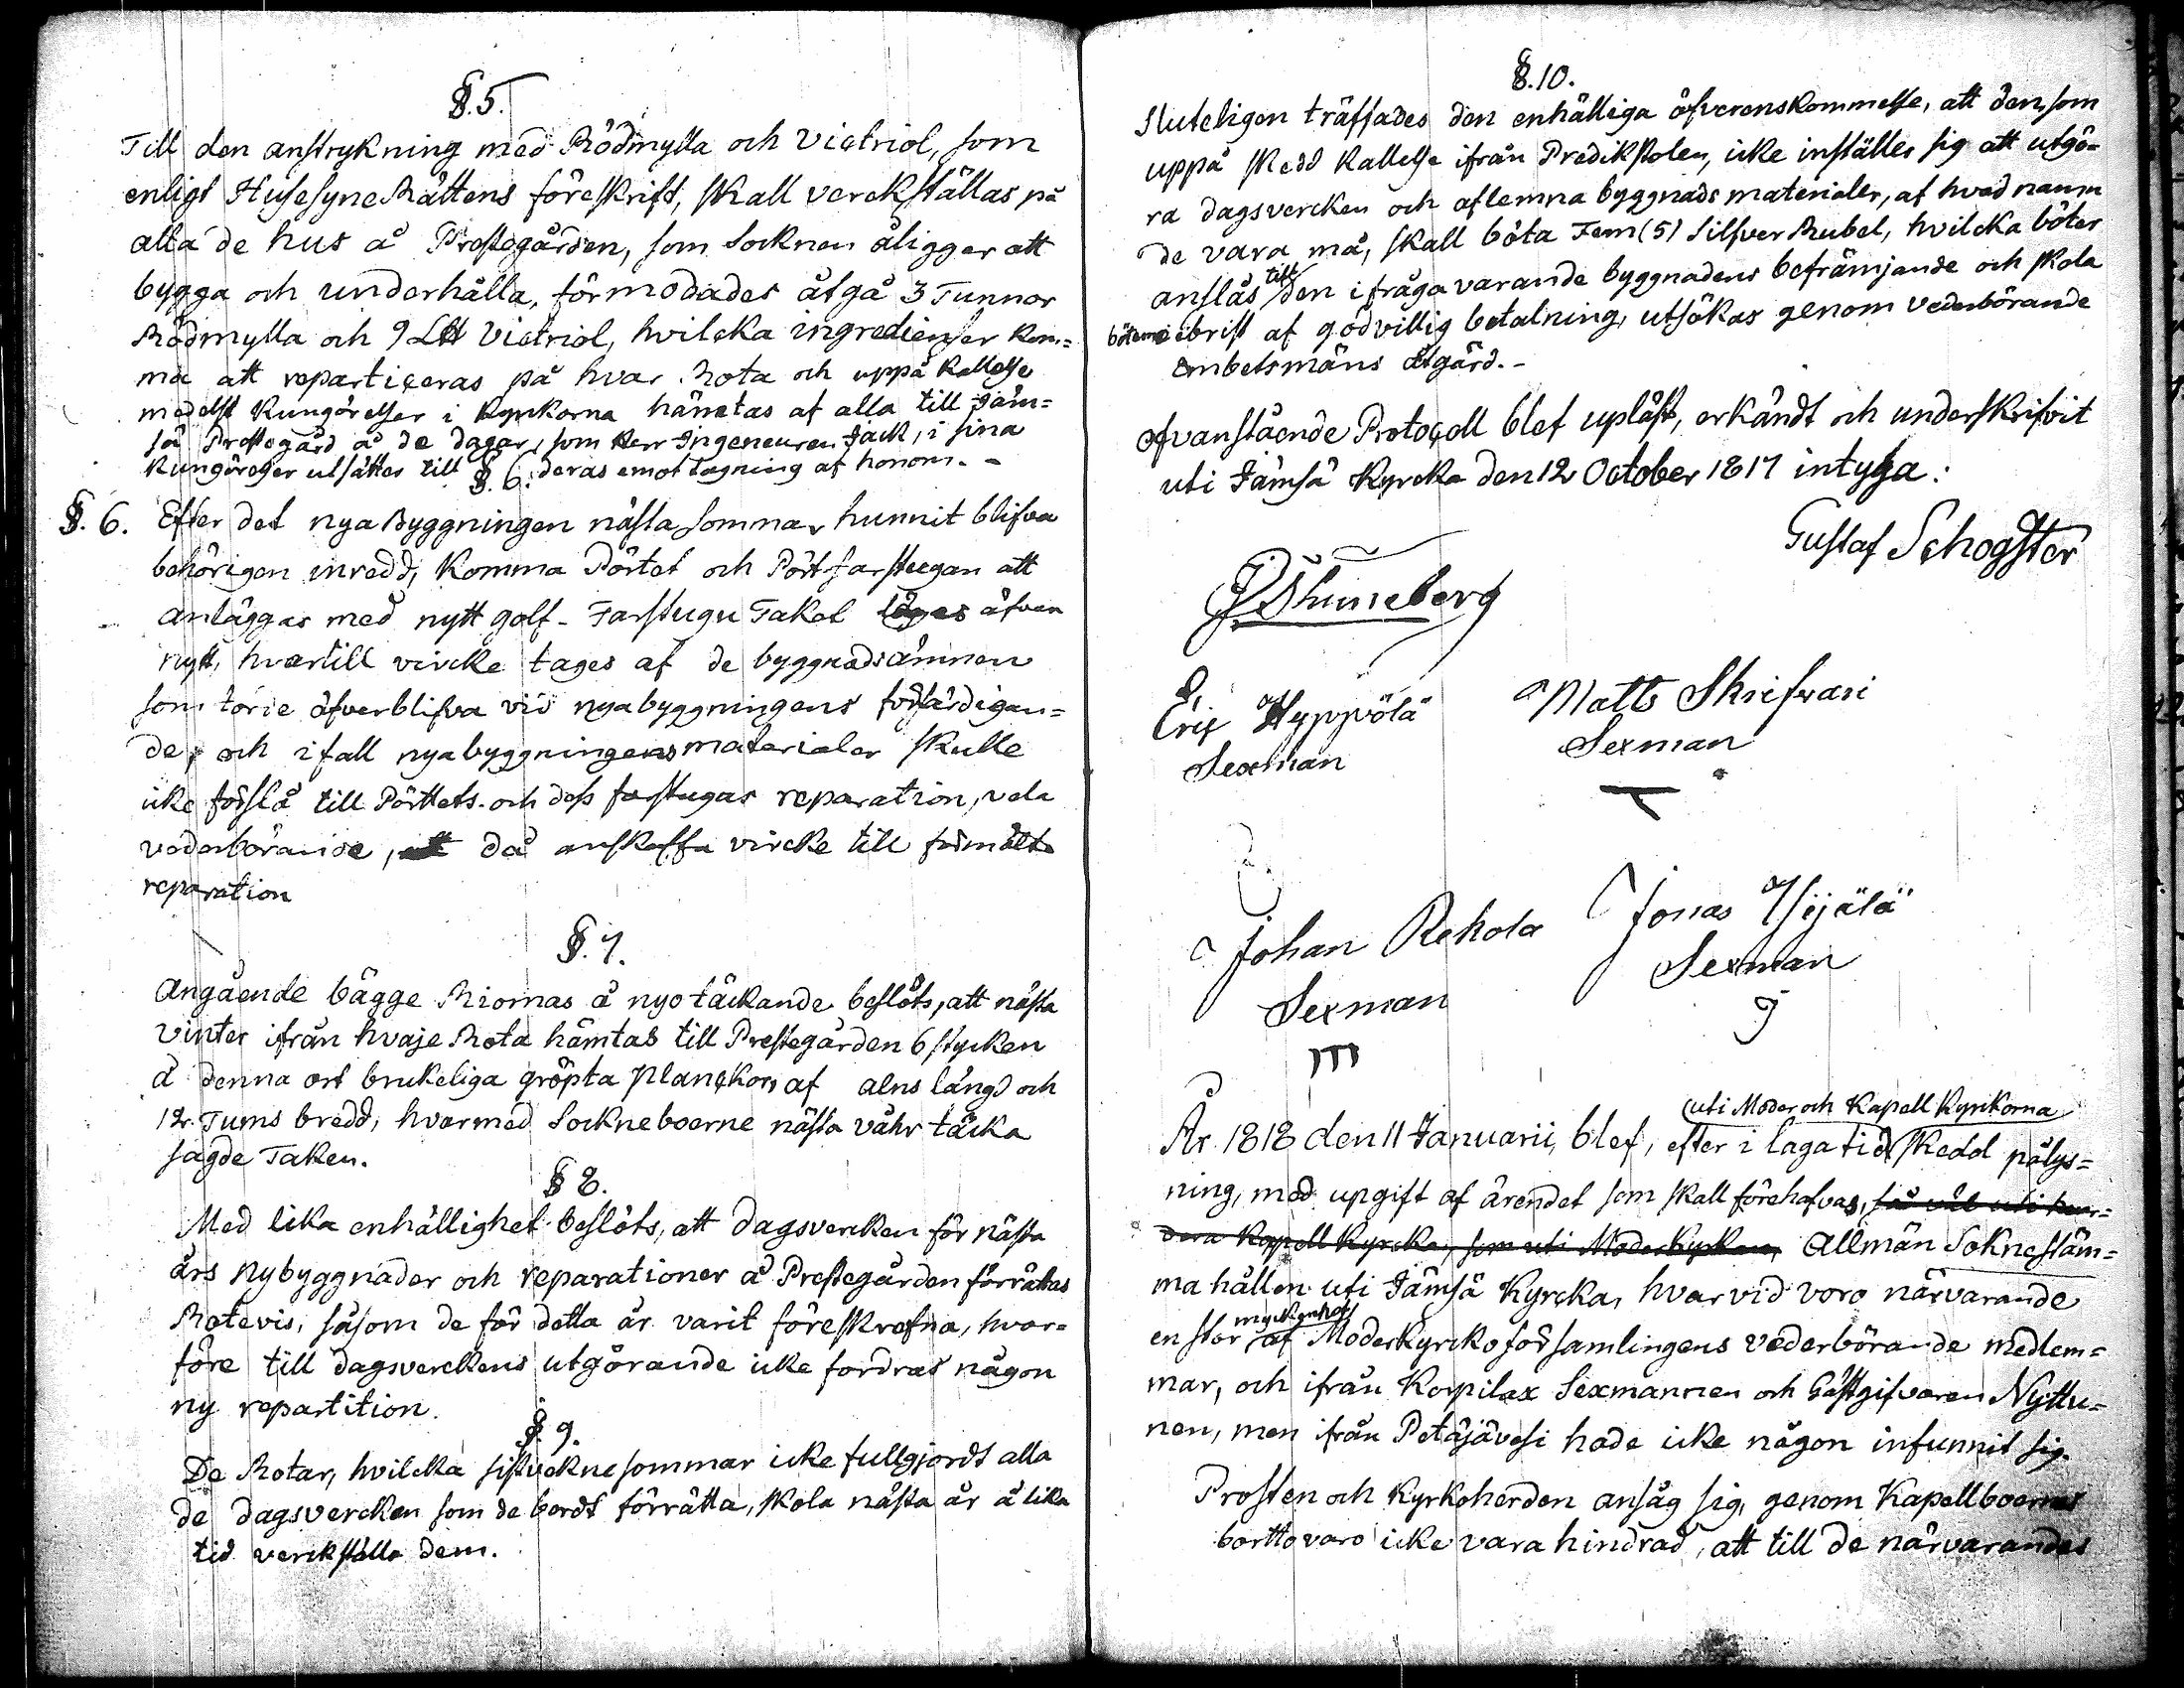 §.5.
Till den anstrykning med Rödmylla och Victriol, som
enligt HusesyneRättens föreskrift, skall verckställas på
alla de hus å Prestegården, som Socknen åligger att
bygga och underhålla, förmodades åtgå 3 Tunnor
Rödmylla och 9 L℔ Victriol, hvilcka ingredienser kom=
ma att reparticeras på hvar Rota och uppå kallelse
medelst Kungörelser i Kyrkorna hämtas af alla till Jäm=
sä Prestegård å de dagar, som Herr Ingeneuren Jack, i sina
Kungörelser utsätter till §.6. deras emottagning af honom. -
§. 6. Efter det nya Byggningen nästa sommar hunnit blifva
behörigen inredd, komma Pörtet och Pörtfarstugan att
anläggas med nytt golf - Farstugu Taket äfven
nytt, hvartill vircke tages af de byggnadsämnen
som törie öfverblifva vid nyabyggningens förfärdigan=
de, och i fall nyabyggningens materialer skulle
icke förslå till Pörttets och dess farstugas reparation, vela
vederbörande, att då anskaffa vircke till förmälte
reparation
§.7.
Angående bägge Riornas å nyo täckande beslöts, att nästa
vinter ifrån hvarje Rota hämtas till Prestegården 6 stycken
å denna ort brukeliga gröpta planckor, af alns längd och
12. Tums bredd, hvarmed Sockneboerne nästa våhr täcka
sagde Taken.
§ 8.
Med lika enhällighet beslöts, att dagsvercken för nästa
års nybyggnader och reparationer å Prestegården förrättas
Rotevis, såsom de för detta år varit föreskrefna, hvar=
före till dagsverckens utgörande icke fordras någon
ny repartition.
§.9.
De Rotar, hvilcka sistvekne sommar icke fullgjordt alla
de dagsvercken som de bordt förrätta, skola nästa år å lika
tid verckställa dem.
§.10.
Sluteligen träffades den enhälliga öfverenskommelse, att den, som
uppå skedd kallelse ifrån Predikstolen, icke inställer sig att utgö=
ra dagsvercken och aflemna byggnads materialer, af hvad namn
de vara må, skall böta Fem (5) Silfver Rubel, hvilcka böter
anslås till den ifråga varande byggnadens befrämjande och skola
böterne i brist af godvillig betalning, utsökas genom vederbörande
Embetsmäns åtgärd. -
Ofvanstående Protocoll blef upläst, erkändt och underskrifvit
uti Jämsä Kyrcka den 12 October 1817 intyga:
Gustaf Schogster
Erix Hyppölä
Sexman
Matts Skrifvari
Sexman
Johan Rekola
Sexman
Jonas Hijälä
Sexman
uti Moder och Kapell Kyrkorna
År 1818 den 11 Januarii, blef, efter i laga tid skedd pålys=
ning, med upgift af ärendet som skall förehafvas, så väl uti hvar=
dera Kapell Kyrcka, som uti Moderkyrkan, Allmän Soknestäm=
ma hållen uti Jämsä Kyrcka, hvarvid voro närvarande
en stor myckenhet af Moderkyrckoförsamlingens vederbörande medlem=
mar, och ifrån Korpilax Sexmannen och Gästgifvaren Nyttu=
nen, men ifrån Petäjävesi hade icke någon infunnit sig.
Prosten och Kyrkoherden ansåg sig, genom Kapellboernes
bortto varo icke vara hindrad, att till de närvarandes